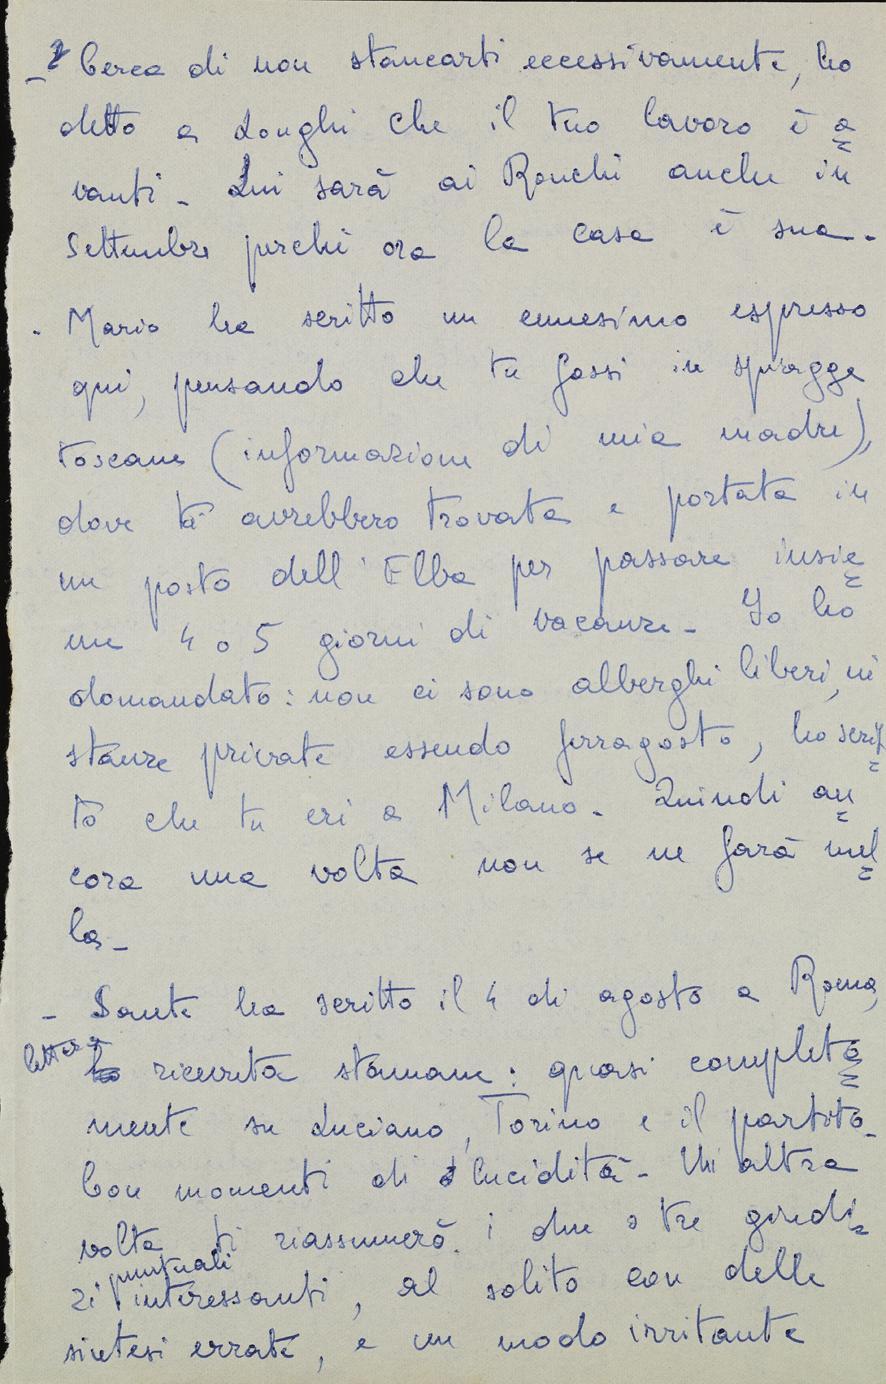 - Cerca di non stancarti eccessivamente, ho
detto a Longhi che il tuo lavoro è a
vanti - Lui sarà ai Ronchi anche in
Settembre perché ora la casa è sua -
- Mario ha scritto un ennesimo espresso
qui, pensando che tu fossi in spiagge
toscane (informazione di mia madre),
dove ti avrebbero trovata e portata in
un posto dell'Elba per passare insie
me 4 o 5 giorni di vacanze - Io ho
domandato: non ci sono alberghi liberi, né
stanze private essendo ferragosto, ho scrit
to che tu eri a Milano - Quindi an
cora una volta non se ne farà nul
la -
- Sante ha scritto il 4 di agosto a Roma,
lettera ricevuta stamane: quasi completa
mente su Luciano, Torino e il partito -
Con momenti di lucidità - Un'altra
volta ti riassumerò i due o tre giudi
zi puntuali interessanti, al solito con delle
sintesi errate, e un modo irritante